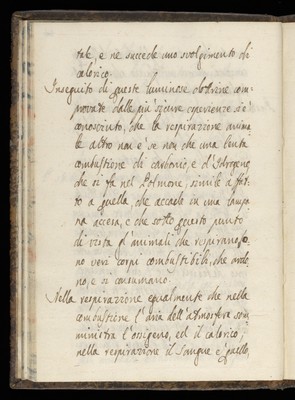 tale, e ne succede uno svolgimento di
calorico.
Inseguito di queste luminose dottrine com-
provate dalle più sicure esperienze si è
conosciuto, che la respirazione anima
le altro non è se non che una lenta
combustione di carbonio, e d'Idrogeno
che si fa nel Polmone, simile affat-
to a quella, che accade in una lampa
na accesa, e che sotto questo punto
di vista gl'animali che respirano so
no veri corpi combustibili, che ardo
no, e si consumano.
Nella respirazione egualmente che nella
combustione l'aria dell'atmosfera som
ministra l'ossigeno, ed il calorico,
nella respirazione il sangue è quello,